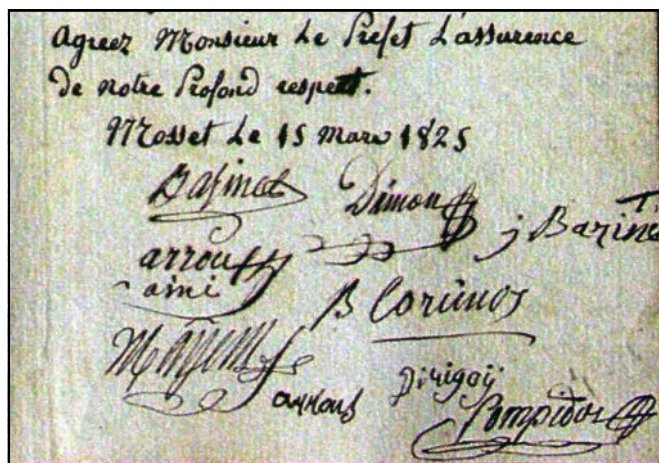 Agreez Monsieur Le Prefet L'assurence
De notre Profond respect.
Mosset Le 15 mars 1825
Dimon
j Barine
arrous
ami
B Corcinos
arrous
Pompidor